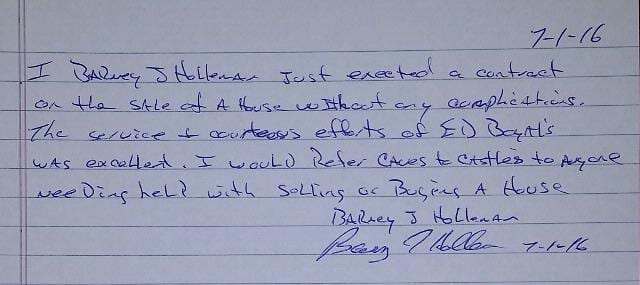 7-1-16
I BARney J Holleman Just enected a contract
on the SAle of A House without any complications.
The service + courteous efforts of ED Boyal's
wAs excellent. I would Refer CAves to CAstles to Anyone
neeDing help with Selling or Buying A House
BARney J Hollenan
7-1-16